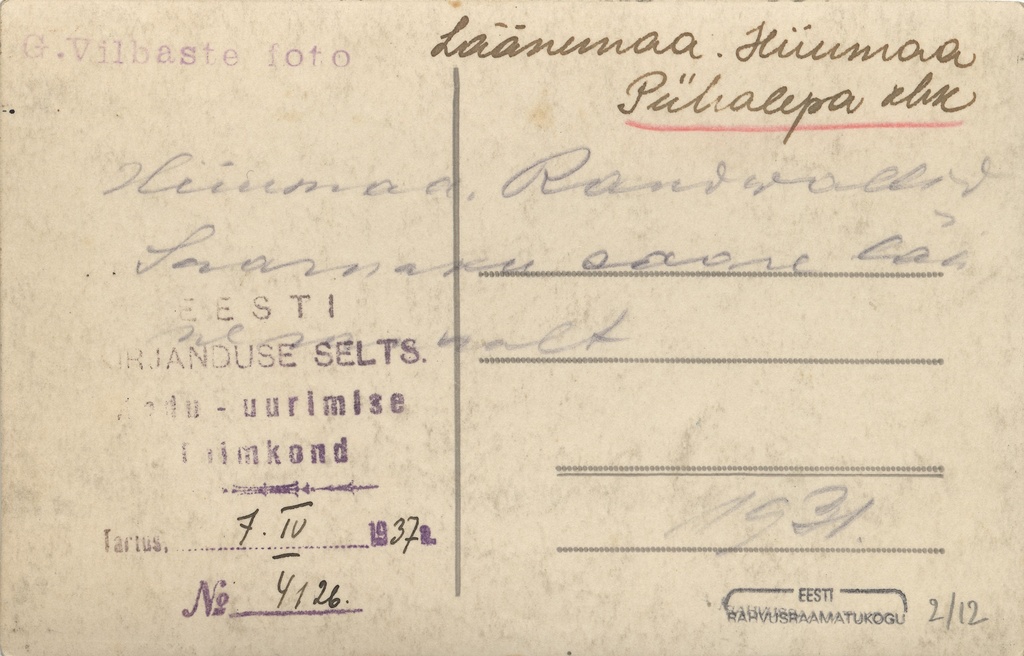 G. Vilbaste foto
Läänemaa. Hiiumaa
Pühalepa khk
Hiiumaa. Randwallid
saare lää
nepoolt
1931.
EESTI
KIRJANDUSE SELTS.
Kodu-uurimise
Toimkond
Tartus, 7. IV 1937 a.
№ 4126.
EESTI
RAHVUSRAAMATUKOGU
2/12